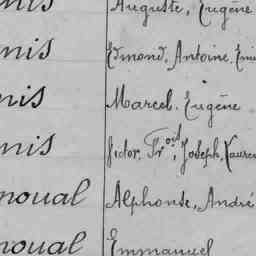 nis Auguste, Eugène
nis Edmond, Antoine, Emi
nis Marcel, Eugène
nis Victor, Frçois, Joseph, Lauren
noual Alphonse, André
noual Emmanuel